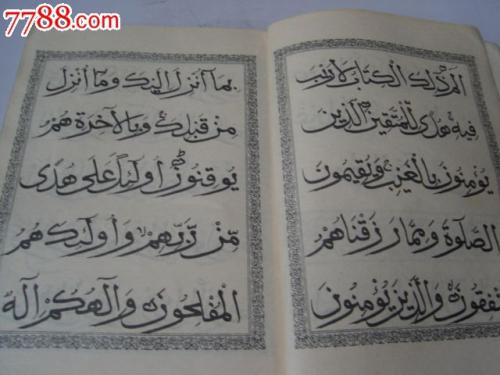 7788.com
الم ذلك الكتاب لا ريب
فيه هدى للمتقين الذين
يؤمنون بالغيب ويقيمون
الصلوة ومما رزقناهم
ينفقون والذين يؤمنون
بما أنزل إليك وما أنزل
من قبلك وبالآخرة هم
يوقنون أولئك على هدى
من ربهم وأولئك هم
المفلحون وإلهكم إله